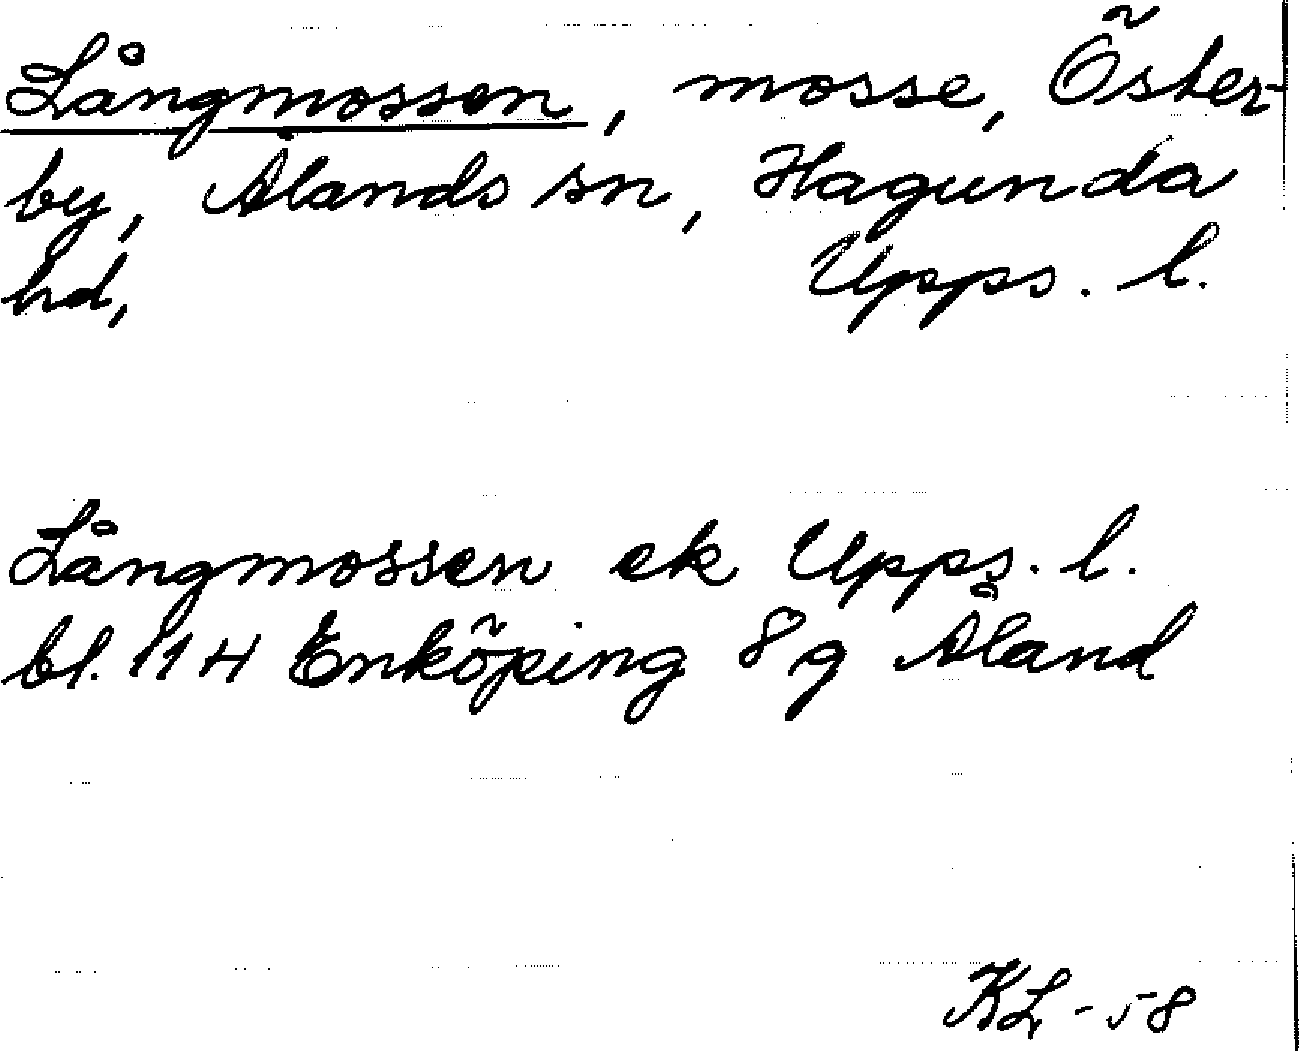 Långmossen, mosse, Öster-
by, Ålands sn, Hagunda
hd, Upps. l.
Långmossen ek Upps. l.
bl. 114 Enköping 8g Åland
KL-58